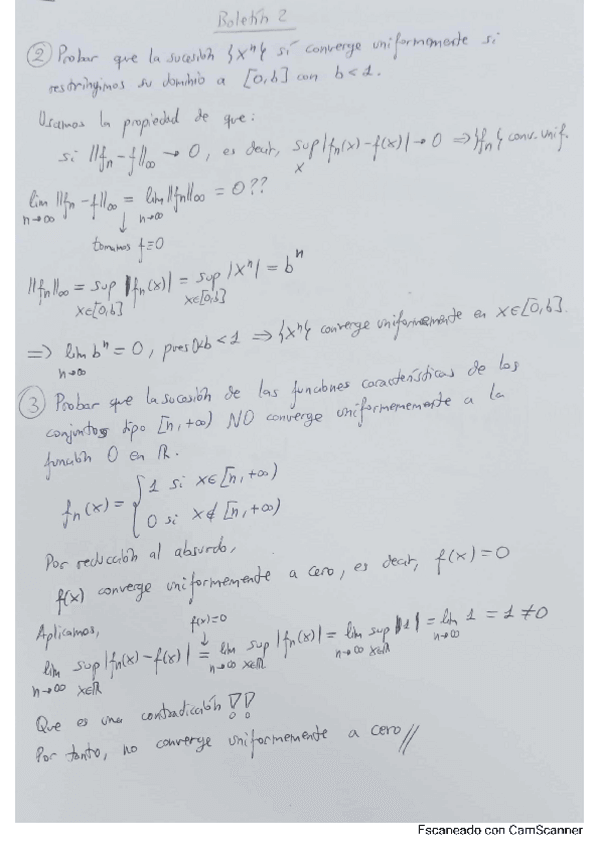 Boletín 2
② Probar que la sucesión {xⁿ} sí converge uniformemente si
restringimos su dominio a [0,b] con b<1.
Usamos la propiedad de que:
si ||fn-f||∞ → 0, es decir, sup|fn(x)-f(x)| → 0 ⇒ {fn} conv. unif.
x
lim ||fn-f||∞ = lim ||fn||∞ = 0??
n→∞ n→∞
↓
tomamos f≡0
||fn||∞ = sup |fn(x)| = sup |xⁿ| = bⁿ
x∈[0,b] x∈[0,b]
⇒ lim bⁿ = 0, pues 0<b<1 ⇒ {xⁿ} converge uniformemente en x∈[0,b].
n→∞
③ Probar que la sucesión de las funciones características de los
conjuntos tipo [n,+∞) NO converge uniformemente a la
función 0 en ℝ.
fn(x) = { 1 si x∈[n,+∞)
0 si x∉[n,+∞)
Por reducción al absurdo,
f(x) converge uniformemente a cero, es decir, f(x)=0
Aplicamos, f(x)=0
↓
lim sup |fn(x)-f(x)| = lim sup |fn(x)| = lim sup |1| = lim 1 = 1 ≠ 0
n→∞ x∈ℝ n→∞ x∈ℝ n→∞ x∈ℝ n→∞
Que es una contradicción !!
Por tanto, no converge uniformemente a cero //
Escaneado con CamScanner